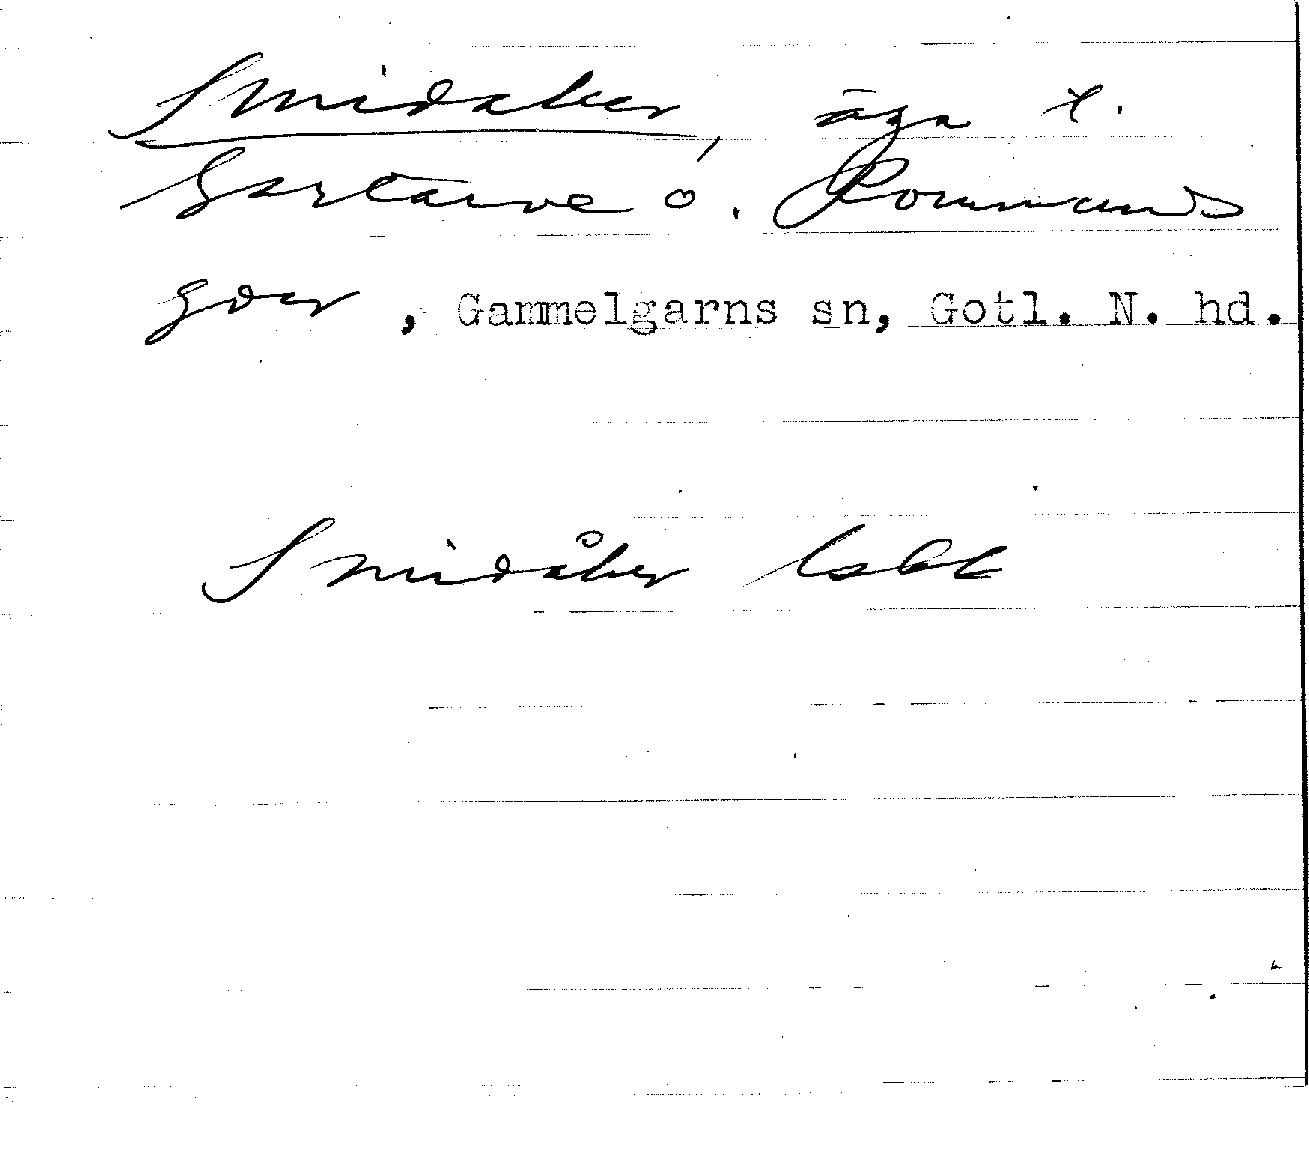 Smidaker, äga t.
Gartarve o. Rommunds
gdar, Gammelgarns sn, Gotl. N. hd.
Smidåker